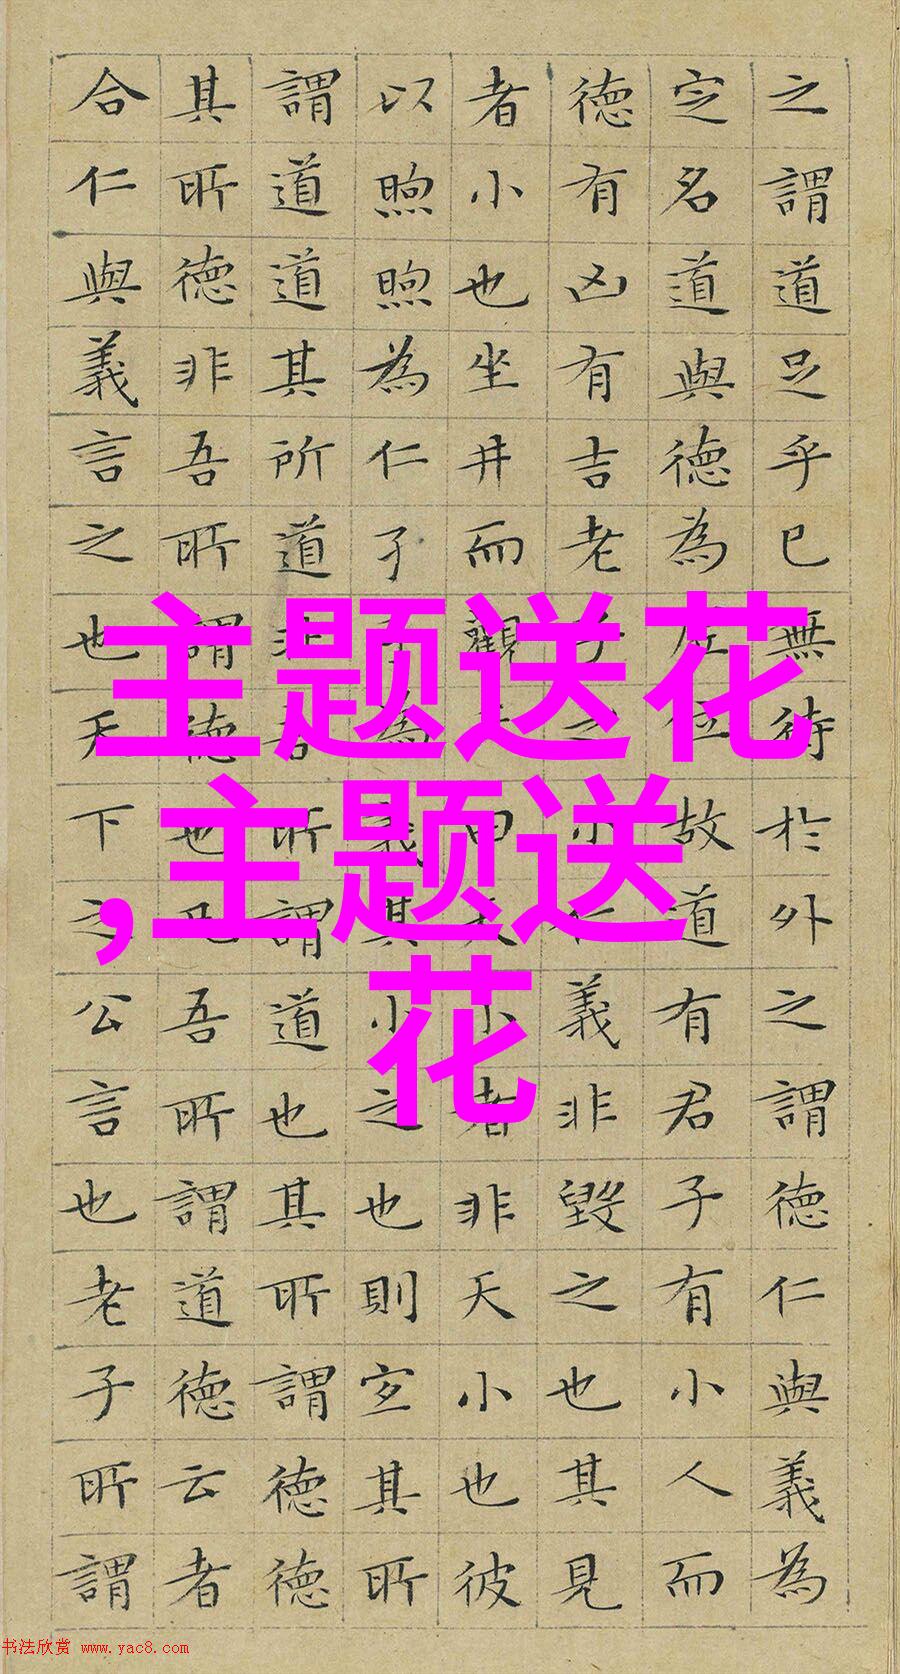 之謂道足乎已無待於外之謂德仁與義為
定名道與德為虛位故道有君子有小人而
德有凶有吉老子之小仁義非毀之也其見
者小也坐井而觀曰天小者非天小也彼
以煦煦為仁孑孑為義其小之也則宜其所
謂道道其所道非吾所謂道也其所謂德德
其所德非吾所謂德也凡吾所謂道德云者
合仁與義言之也天下之公言也老子所謂
主题送花
,主题送
花
书法欣赏 www.yac8.com